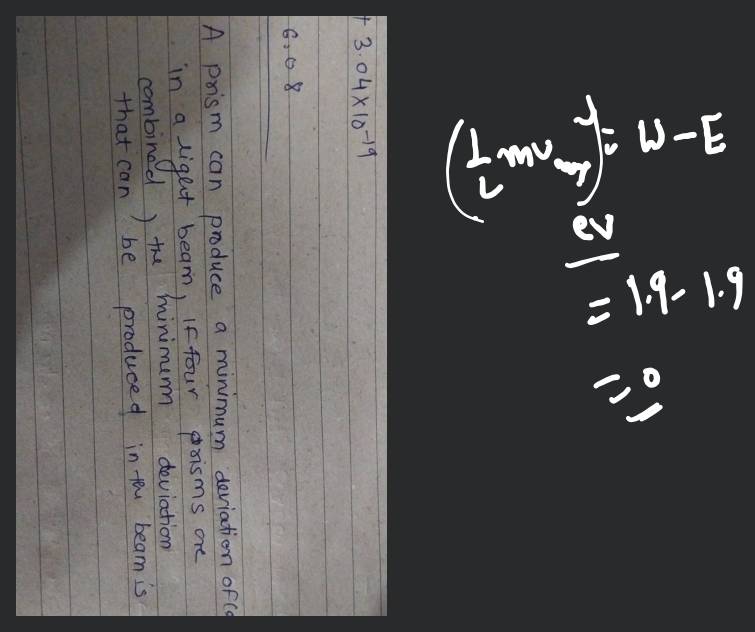 + 3.04×10⁻¹⁹
6.08
A prism can produce a minimum deviation of
in a light beam, If four prisms are
combined, the minimum deviation
that can be produced in the beam is
= W - E
ev
= 1.9 - 1.9
= 0